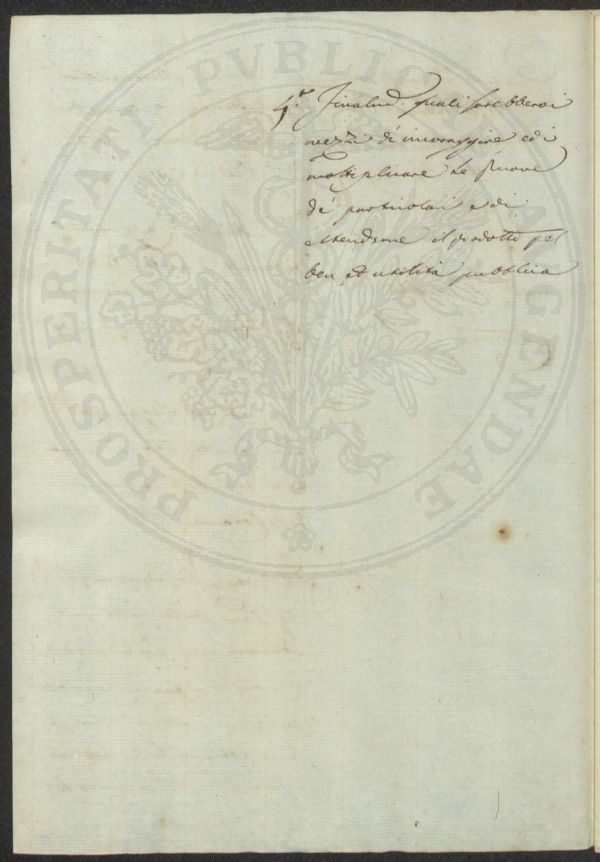 4.° Finalm.e quali sarebbero i
mezzi di incoraggire ed i
moltiplicare le prove
dé particolari e di
estenderne il prodotto pel
ben ed utilità pubblica
PROSPERITATI PVBLICAE AVGENDAE